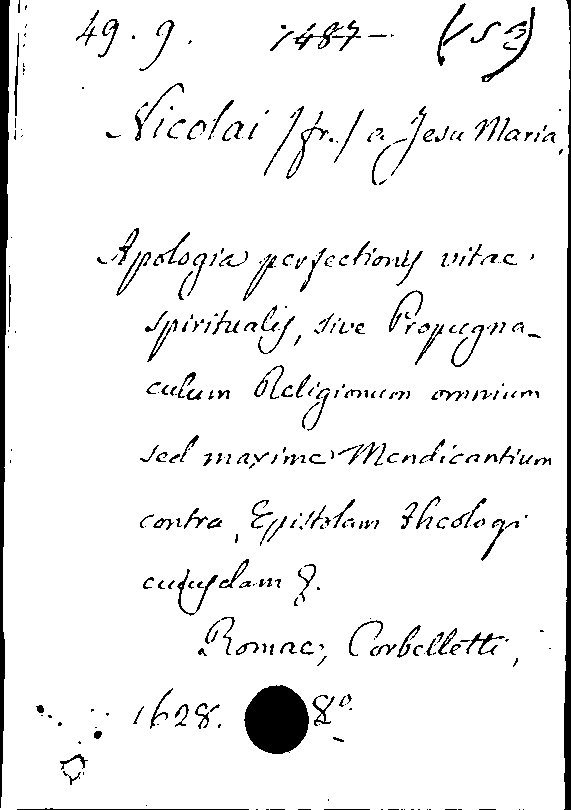 49.9. 1487 (VS3)
Nicolai /fr./ a Jesu Maria.
Apologia perfectionis vitae
spiritualis, sive Propugna-
culum Religionum omnium
sed maxime Mendicantium
contra Epistolam theologi
cujusdam &.
Romae, Corbelletti,
1628. 8º.